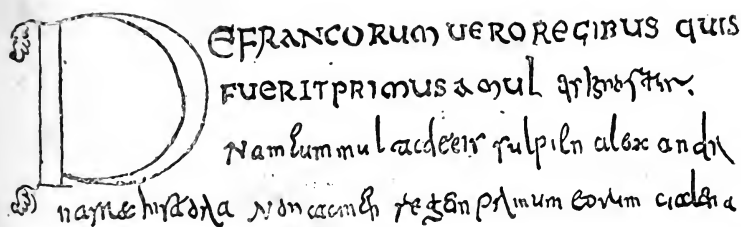 DEFRANCORUM UERO REGIBUS QUIS
FUERIT PRIMUS A MUL
Nam cum multa de eis sulpici alexandri
narrat historia non tamen regem primum eorum